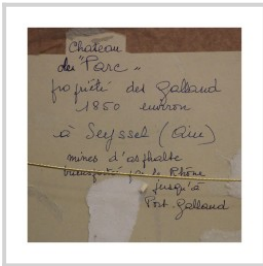 Chateau
du "Parc" -
propriété des Galland
1850 environ
à Seyssel (Ain)
mines d'asphalte
transporté par le Rhône
jusqu'à
Port-Galland